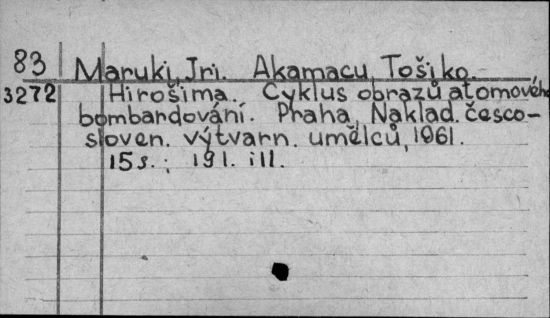 83 Maruki, Jri. Akamacu, Tošiko.
3272 Hirošima. Cyklus obrazů atomového
bombardování. Praha, Naklad. česco-
sloven. výtvarn. umělců, 1961.
15 s.; 19 l. ill.